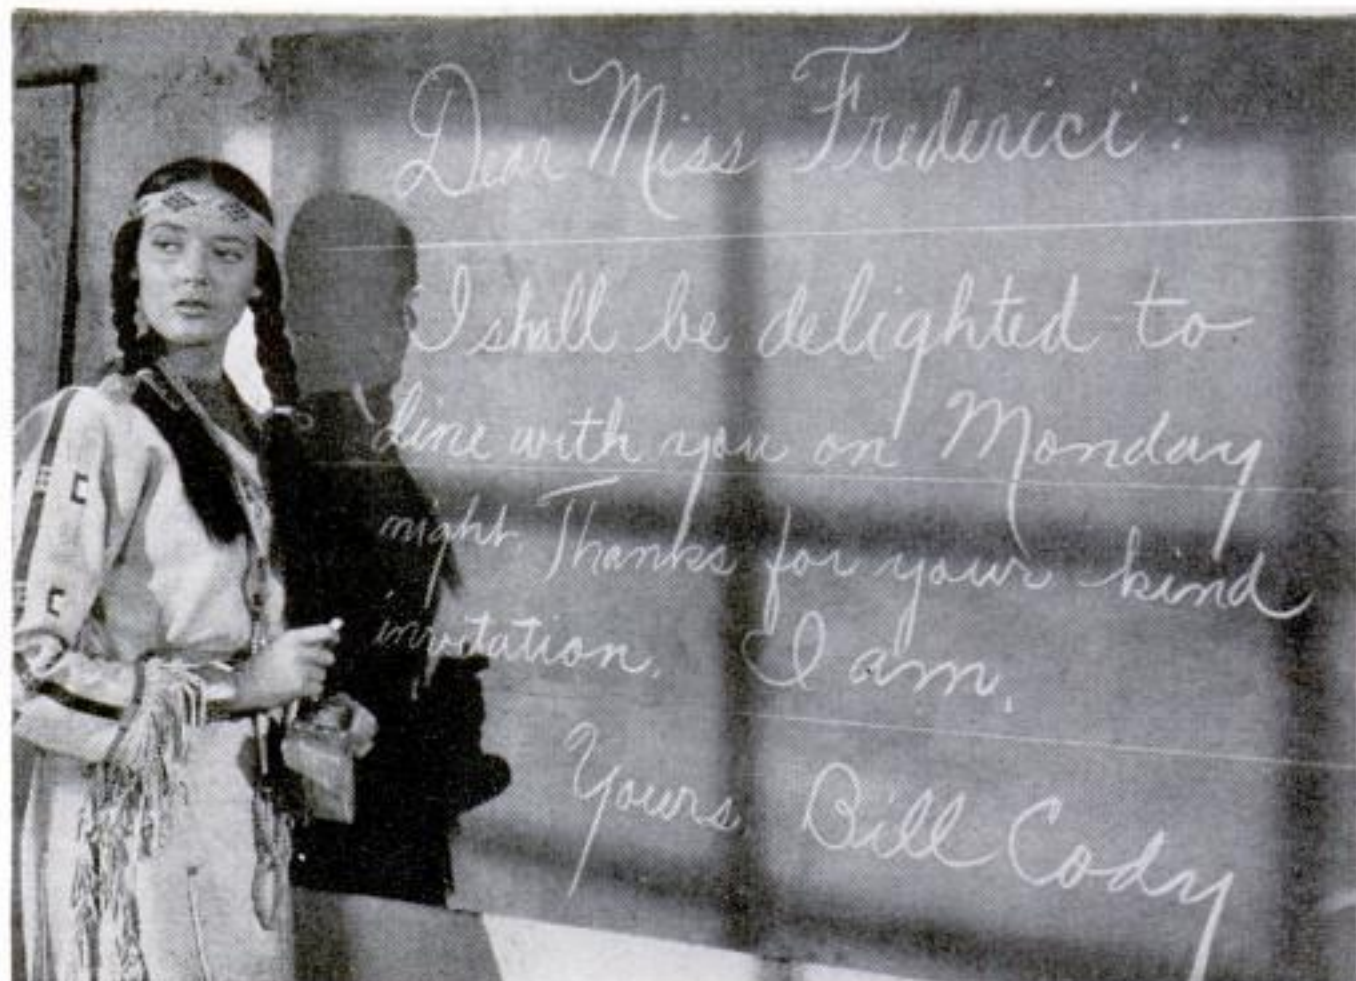 Dear Miss Frederici:
I shall be delighted to
dine with you on Monday
night. Thanks for your kind
invitation. I am,
Yours, Bill Cody